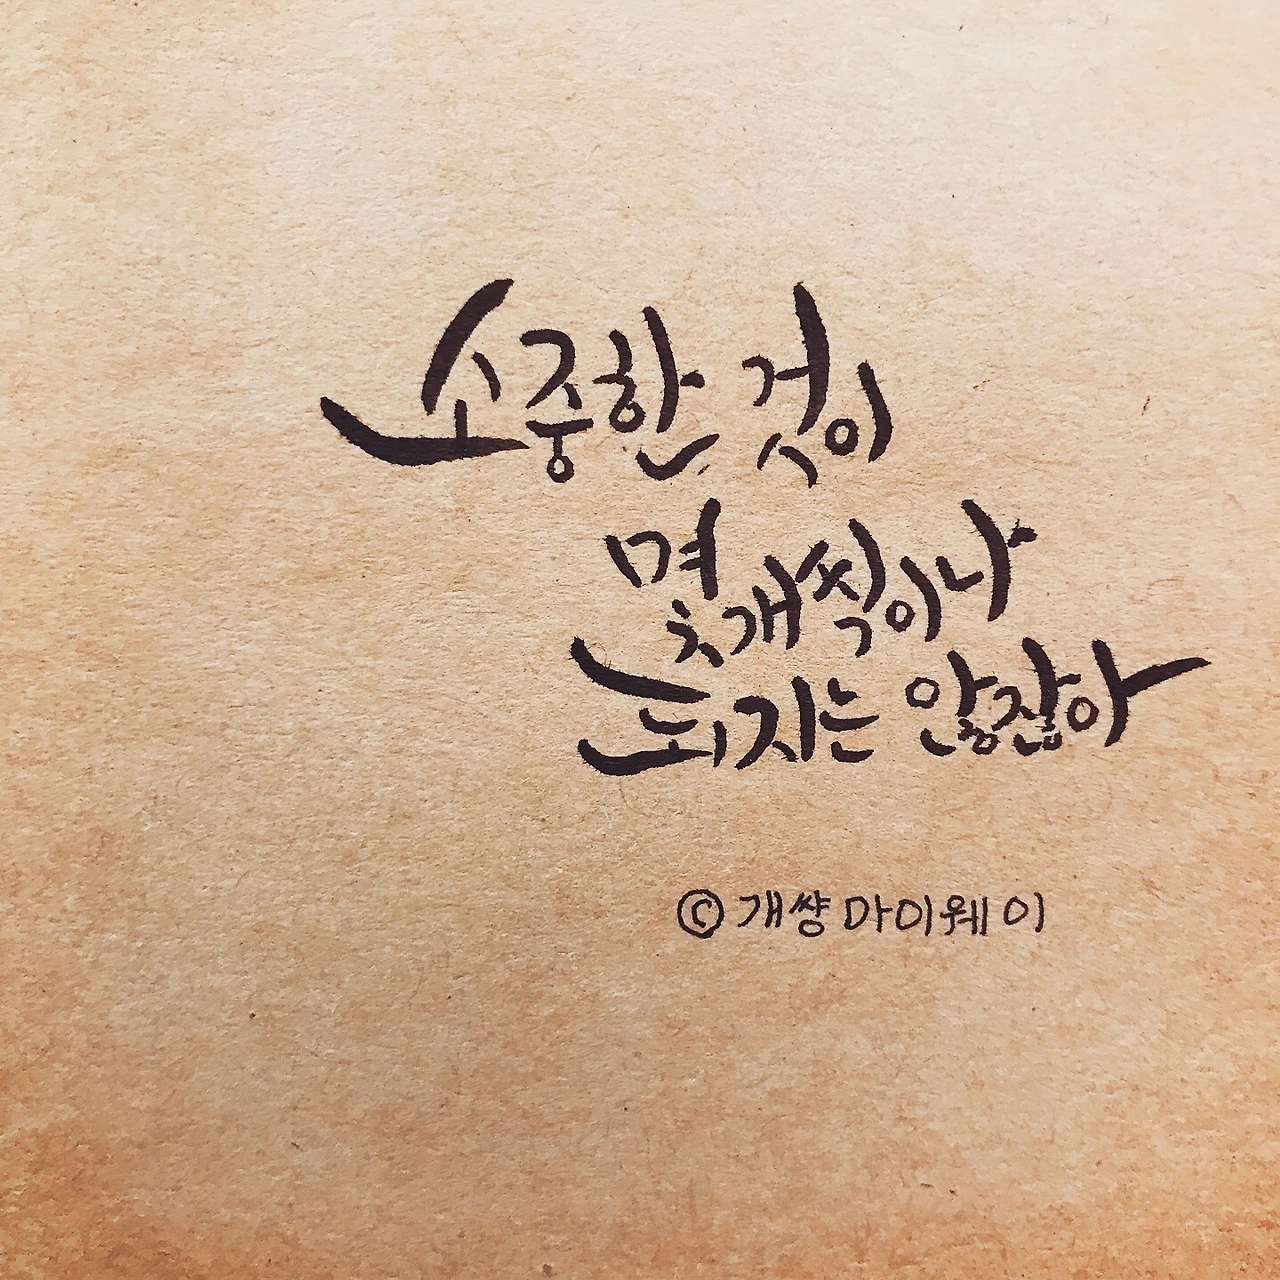 소중한 것이
몇 개씩이나
되지는 않잖아
ⓒ 개썅 마이웨이